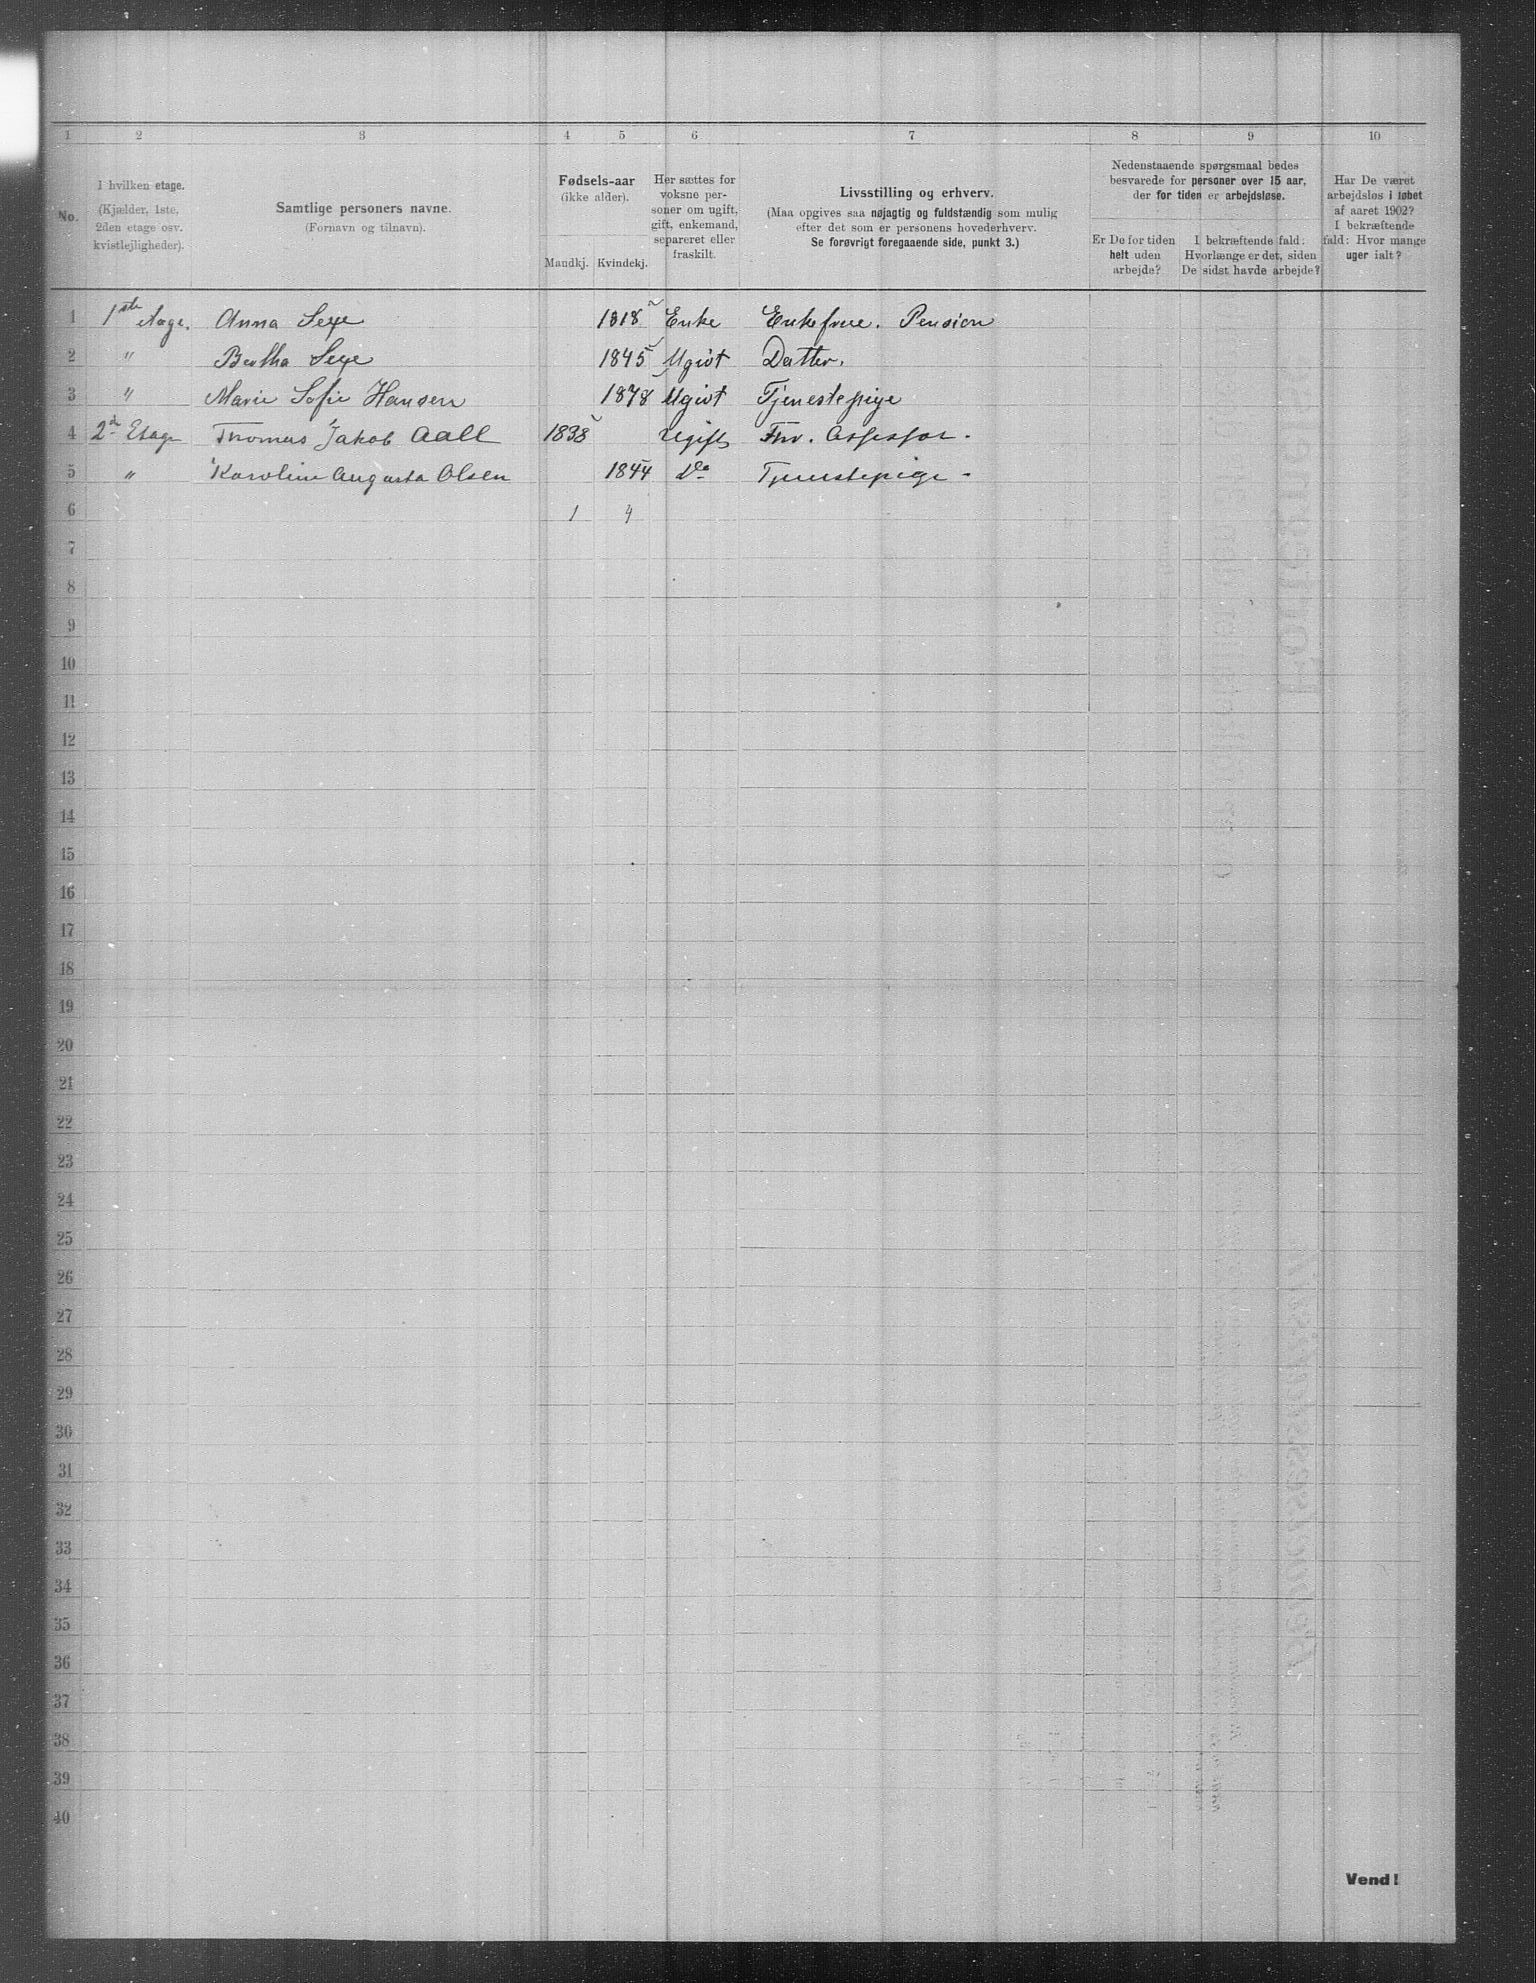 1 2 3 4 5 6 7 8 9 10
No.
I hvilken etage.
(Kjælder, 1ste,
2den etage osv.
kvistlejligheder).
Samtlige personers navne.
(Fornavn og tilnavn).
Fødsels-aar
(ikke alder).
Mandkj. Kvindekj.
Her sættes for
voksne per-
soner om ugift,
gift, enkemand,
separeret eller
fraskilt.
Livsstilling og erhverv.
(Maa opgives saa nøjagtig og fuldstændig som mulig
efter det som er personens hovederhverv.
Se forøvrigt foregaaende side, punkt 3.)
Nedenstaaende spørgsmaal bedes
besvarede for personer over 15 aar,
der for tiden er arbejdsløse.
Er De for tiden
helt uden
arbejde?
I bekræftende fald:
Hvorlænge er det, siden
De sidst havde arbejde?
Har De været
arbejdsløs i løbet
af aaret 1902?
I bekræftende
fald: Hvor mange
uger ialt?
1 1ste etage. Anna Sexe 1818 Enke Enkefrue. Pension
2 " Bertha Sexe 1845 Ugivt Datter.
3 " Marie Sofie Hansen 1878 Ugivt Tjenestepige
4 2d Etage Thomas Jakob Aall 1838 Ugift Fhv. Assessor.
5 " Karoline Augusta Olsen 1844 Do Tjenestepige -
6 1 4
7
8
9
10
11
12
13
14
15
16
17
18
19
20
21
22
23
24
25
26
27
28
29
30
31
32
33
34
35
36
37
38
39
40
Vend!